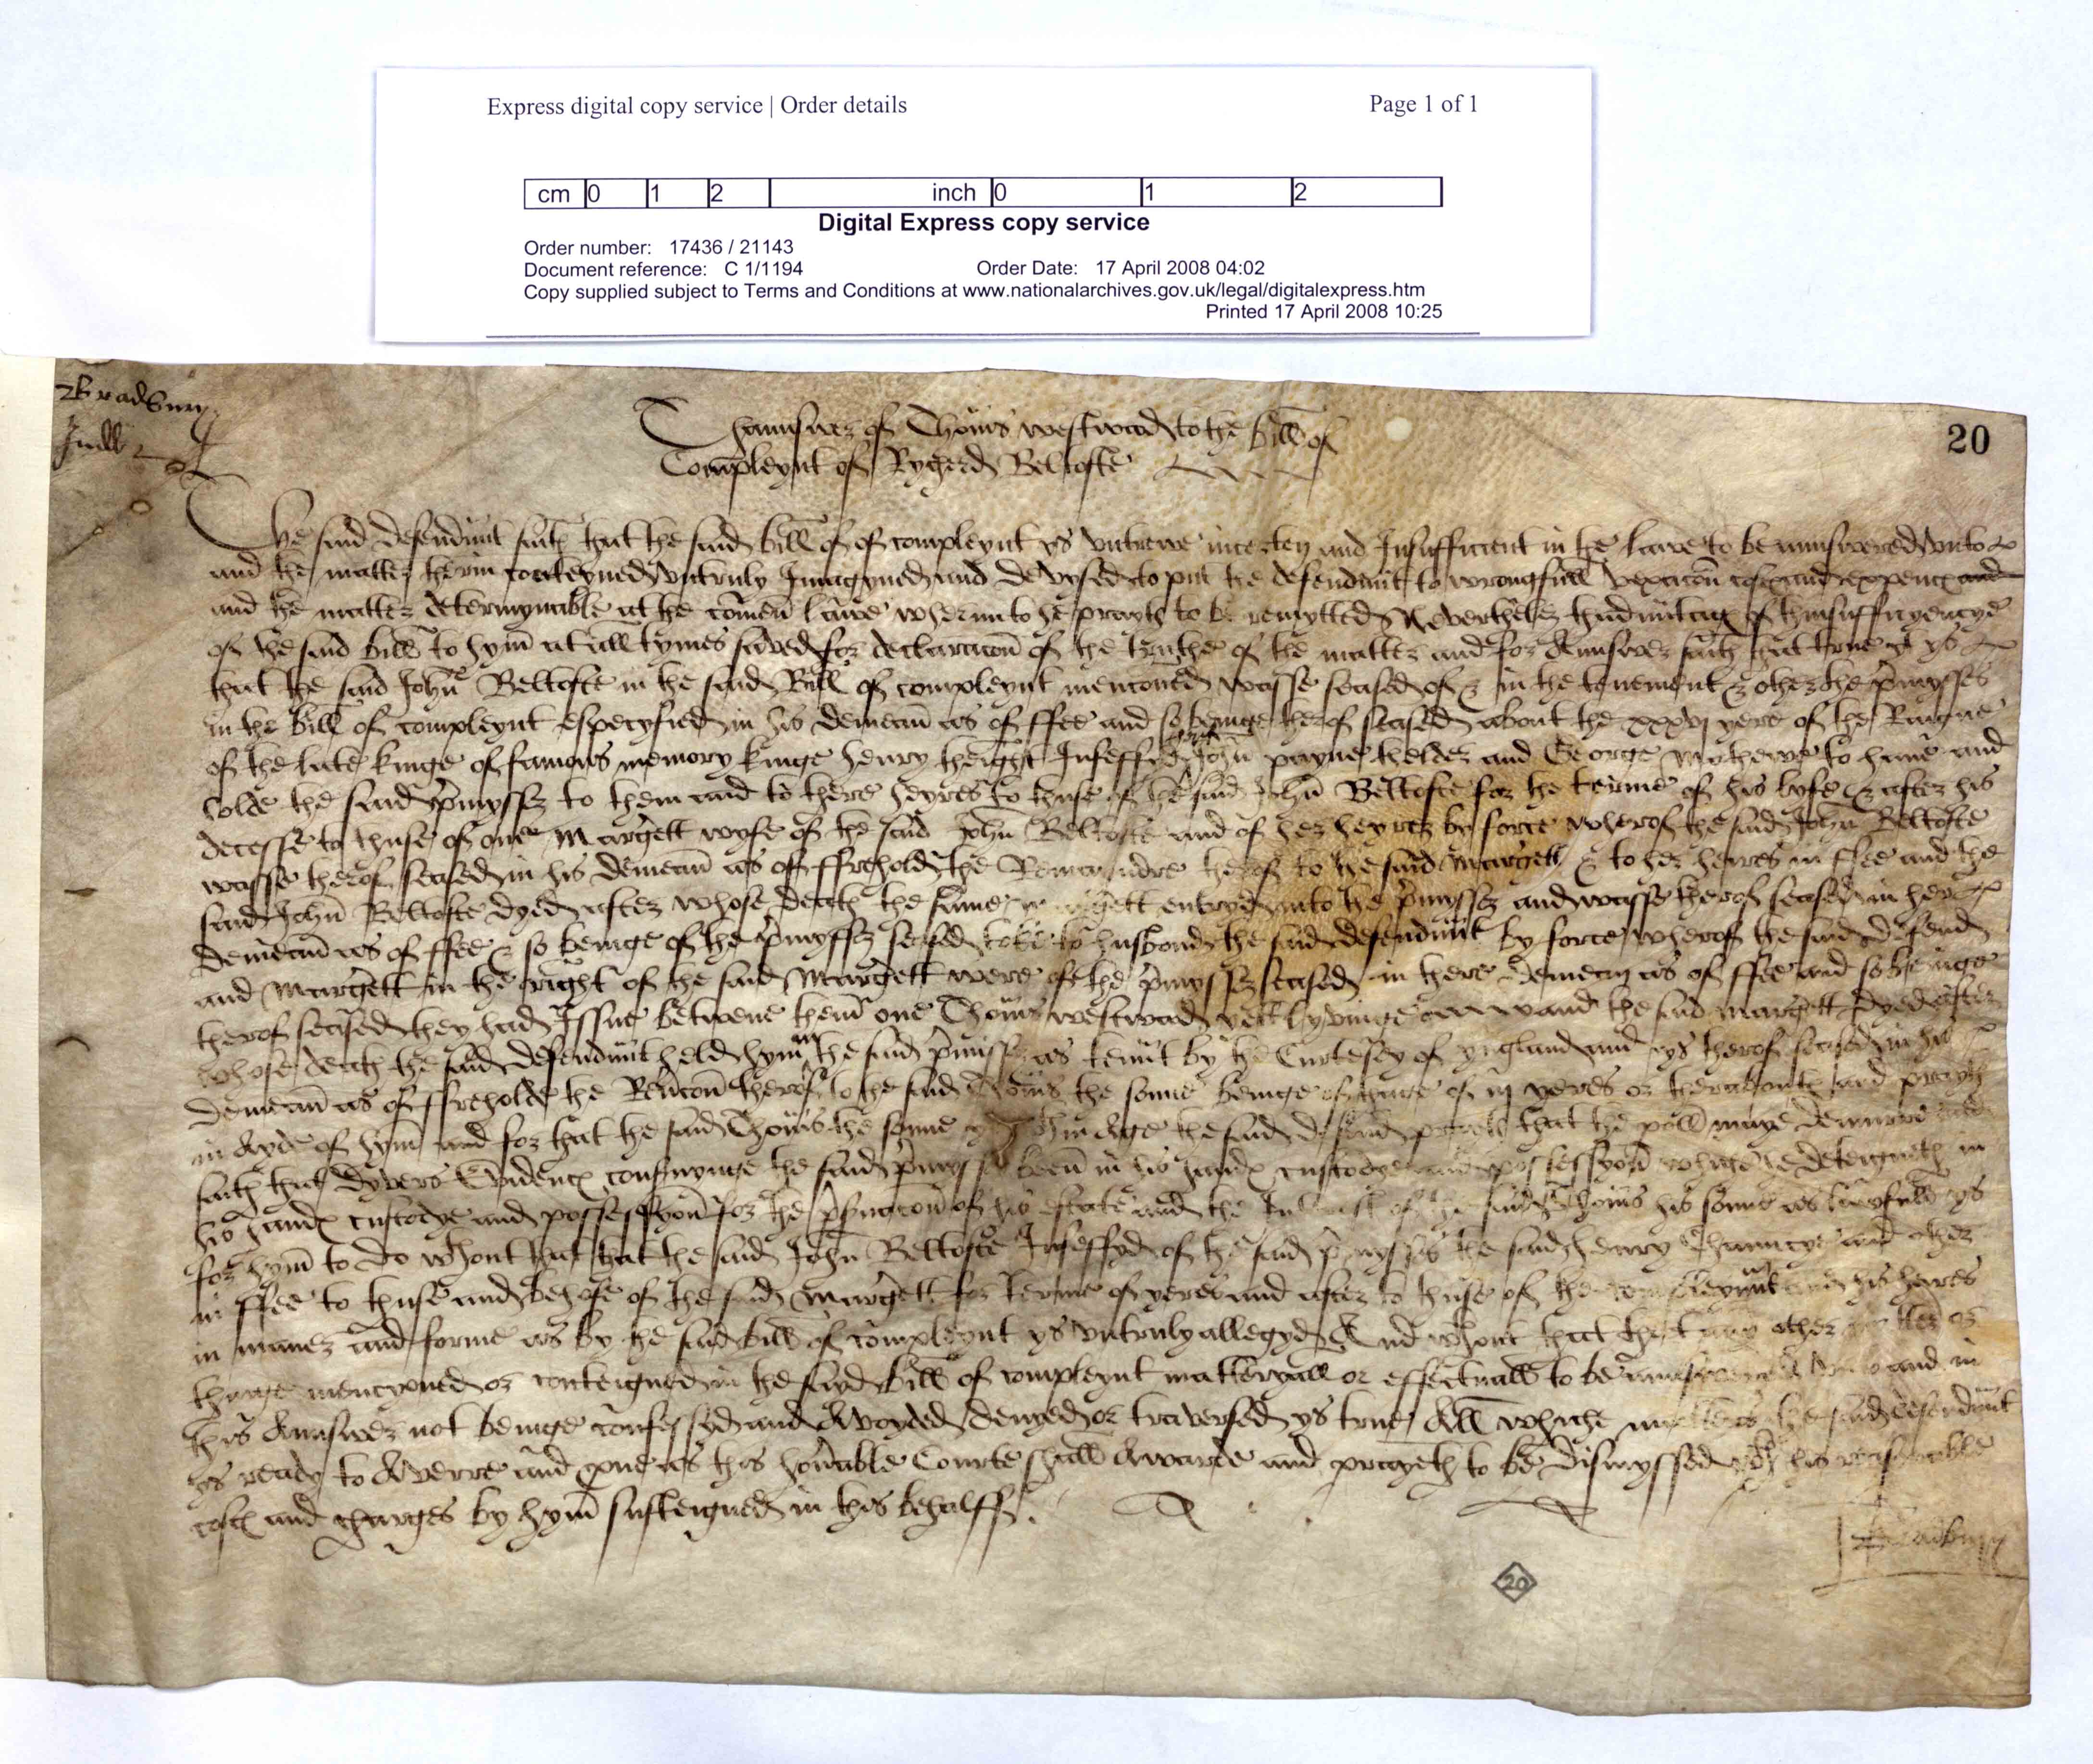 Express digital copy service | Order details Page 1 of 1
cm 0 1 2 inch 0 1 2
Digital Express copy service
Order number: 17436 / 21143
Document reference: C 1/1194 Order Date: 17 April 2008 04:02
Copy supplied subject to Terms and Conditions at www.nationalarchives.gov.uk/legal/digitalexpress.htm
Printed 17 April 2008 10:25
Bradbury
20
Thaunswer of Thoms Westwod to the Bill of
Compleynt of Rycherd Beltofte
The said defendunt saith that the said bill of of compleynt ys untrewe incerten and Insufficient in the lawe to be aunswered unto
and the matter therin conteyned untruly Imagyned and devysed to put the defendunt to wrongfull vexacon costes and expences and
and the matter determynable at the comen lawe wherunto he prayth to be remytted Neverthelez thadvantage of thinsufficyencye
of the said bill to hym at all tymes saved for declaracion of the truthe of the matter and for Aunswer saith that true yt ys
that the said John Beltofte in the said Bill of compleynt menconed wasse seased of & in the tenement & other the pmysses
in the bill of compleynt especyfied in his demean as of ffee and so beinge therof seased about the xxxvj yere of the Raigne
of the late kinge of famous memory kinge henry theight Infeffyd John payne thelder and George Mathewe to have and
holde the said pmyssez to them and to there heyres to thuse of the said John Beltofte for the terme of his lyfe & after his
decesse to thuse of one Margett wyfe of the said John Beltofte and of her heyrez by force wherof the said John Beltofte
wasse therof seased in his demean as of ffreholde the Remayndre therof to the said Margett & to her heires in ffee and the
said John Beltofte dyed after whose death the same Margett entryd into the pmyssez and wasse therof seased in her
demean as of ffee & so beinge of the pmyssez seased toke to husbond the said defendunt by force wherof the said defend
and Margett in the right of the said Margett were of the pmyssez seased in there demean as of ffee and so beinge
therof seased they had Issue betwene them one Thoms westwod yett lyvinge and the said margett dyed after
whose death the said defendunt held hym in the said pmissez as tenut by the Curtesey of yngland and ys therof seased in his
demean as of ffreholde the Revcon therof to the said Thoms the sonne beinge of thage of iij yeres or therabouts and prayth
in Ayde of hym and for that the said Thoms the sonne ys within Age the said defend prayth that the maye demurre and
saith that dyvers Evidences concernynge the said pmyssez been in his handes custodye and possessyon whiche he deteigneth in
his handes custodye and possessyon for the pservacon of his estate and the Interest of the said Thoms his sonne as lawfull ys
for hym to do whout that that the said John Beltofte Infeffyd of the said pmysses the said henry Chauncye and other
in ffee to thuse and behofe of the said Margett for terme of yeres and after to thuse of the compleynunt and his heires
in maner and forme as by the said bill of compleynt ys untruly allegyd And whout that that any other matter or
thinge mencyoned or conteigned in the sayd bill of compleynt matteryall or effectuall to be aunswered unto and in
this Aunswer not beinge confessyd and Avoyded denyed or traversed ys true All whiche matters the said defendunt
ys ready to Averre and prove as this honable Courte shall Awarde and prayeth to be dismyssed with his reasonable
costes and charges by hym susteigned in this behalff.
Bradbury
20